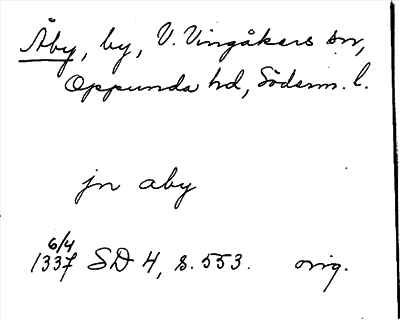 Åby, by, V. Vingåkers sn,
Oppunda hd, Söderm. l.
jn aby
6/4
1337 SD 4, s. 553. orig.